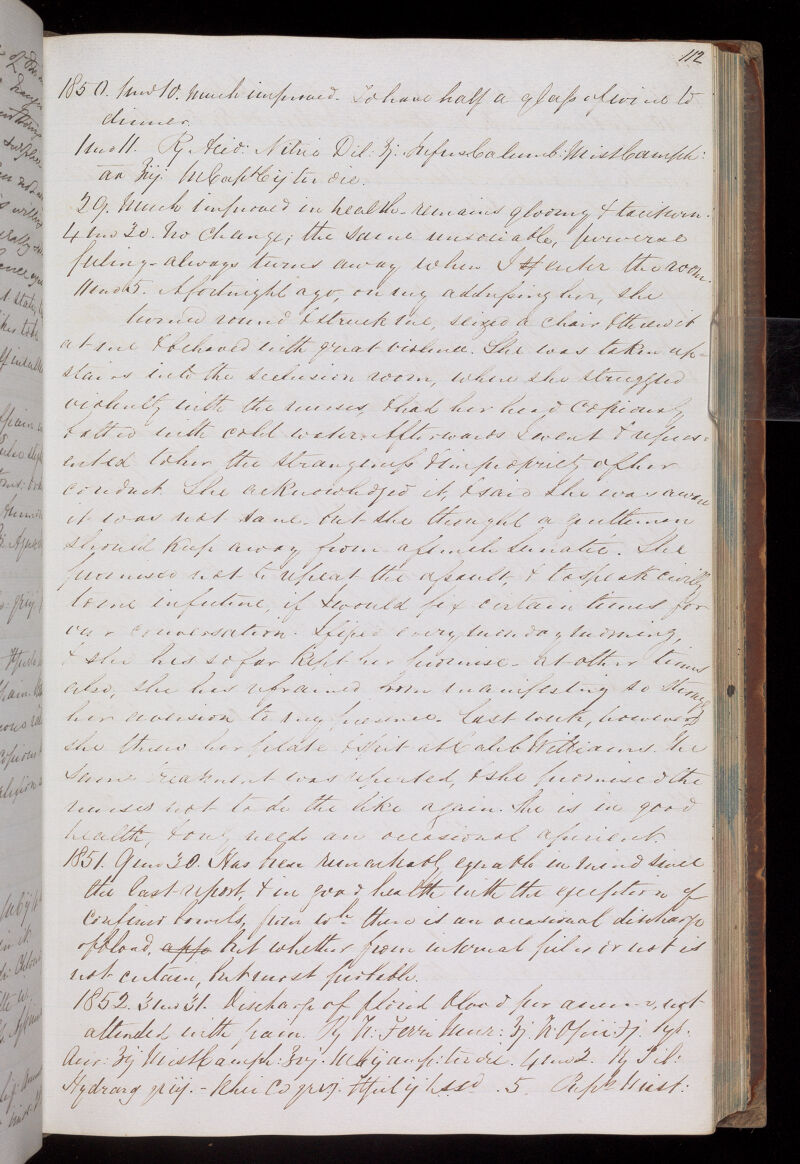 112
1850. 1mo 10. Much improved. To have half a glass of wine to
dinner.
1mo 11. Rx Acid: Nitric Dil: ʒj Infus Calumb: Mist Camph:
aa ℥iij. M Capt Cijter die.
29. Much improved in health - remains gloomy & taciturn.
4 mo 30. No change; the same unsociable, perverse
feeling - always turns away when I enter the room.
11mo 25. A fortnight ago, on my addressing her, she
turned round & struck me, seized a chair & threw it
at me & behaved with great violence. She was taken up-
stairs into the seclusion room, where she struggled
violently with the nurses, & had her head copiously
bathed with cold water. Afterwards I went & repres-
ented to her the strangeness & impropriety of her
conduct. She acknowledged it, & said she was aware
it was not sane - but she thought a gentleman
should keep away from a female lunatic. She
promised not to repeat the assault, & to speak civilly
to me in future, if I would fix certain times for
our conversation. I fixed every monday morning,
& she has so far kept her promise - at other times
also, she has refrained from manifesting so strongly
her aversion to my presence. Last week, however,
she threw her plate & spit at Caleb Williams. The
same treatment was repeated, & she promised the
nurses not to do the like again. She is in good
health, & only needs an occasional aperient.
1851. 9mo 30. Has been remarkably equable in mind since
the last report, & in good health with the exception of
confined bowels, from wh. there is an occasional discharge
of blood, but whether from internal piles or not is
not certain, but most probable.
1852. 3mo 31. Discharge of florid blood per anum, not
attended with pain. Rx Tr: Ferri Mur: ʒj Tr Opii Syr.
Aur: ʒij Mist Camph: ℥vj. M ter die. 4mo 2. Rx Pil:
Hydrarg grij - Rhei Co grvj. ft pil ij h.s.s. 5. Rept Mist: